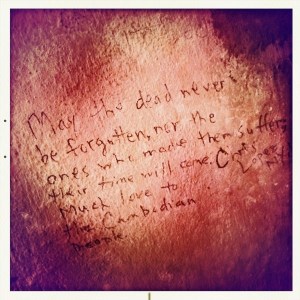 May the dead never
be forgotten, nor the
ones who made them suffer,
their time will come.
Much love to
the Cambodian
people